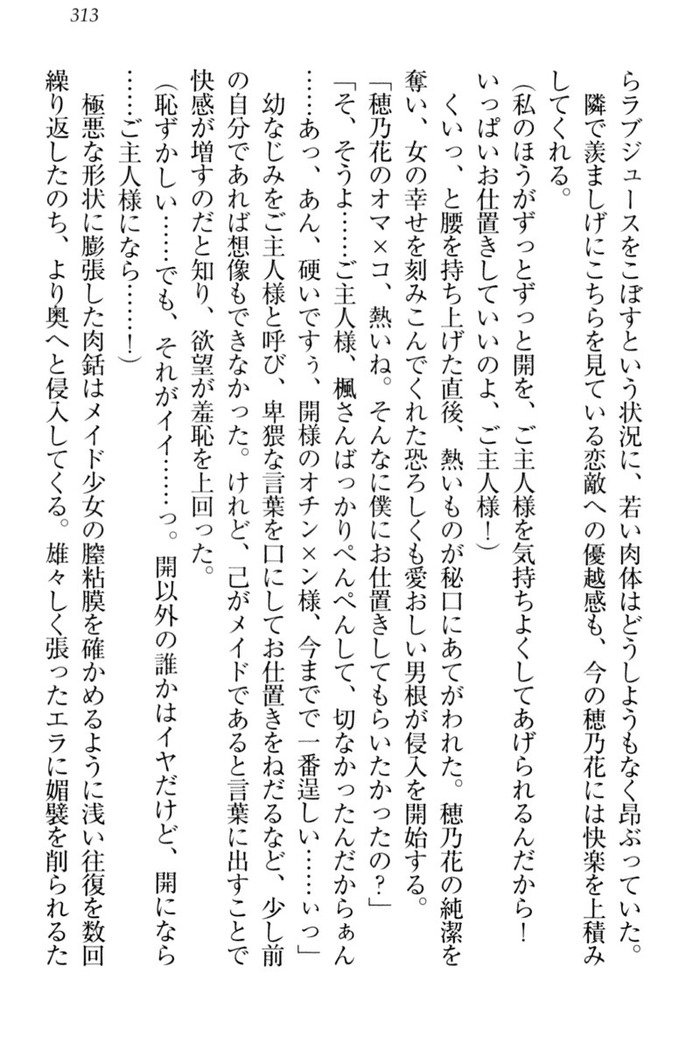 313
らラブジュースをこぼすという状況に、若い肉体はどうしようもなく昂ぶっていた。
隣で羨ましげにこちらを見ている恋敵への優越感も、今の穂乃花には快楽を上積み
してくれる。
(私のほうがずっとずっと開を、ご主人様を気持ちよくしてあげられるんだから!
いっぱいお仕置きしていいのよ、ご主人様!)
くいっ、と腰を持ち上げた直後、熱いものが秘口にあてがわれた。穂乃花の純潔を
奪い、女の幸せを刻みこんでくれた恐ろしくも愛おしい男根が侵入を開始する。
「穂乃花のオマ×コ、熱いね。そんなに僕にお仕置きしてもらいたかったの?」
「そ、そうよ……ご主人様、楓さんばっかりぺんぺんして、切なかったんだからぁん
……あっ、あん、硬いですぅ、開様のオチン×ン様、今までで一番逞しい……ぃっ」
幼なじみをご主人様と呼び、卑猥な言葉を口にしてお仕置きをねだるなど、少し前
の自分であれば想像もできなかった。けれど、己がメイドであると言葉に出すことで
快感が増すのだと知り、欲望が羞恥を上回った。
(恥ずかしい……でも、それがイイ……っ。開以外の誰かはイヤだけど、開になら
……ご主人様になら……!)
極悪な形状に膨張した肉銛はメイド少女の膣粘膜を確かめるように浅い往復を数回
繰り返したのち、より奥へと侵入してくる。雄々しく張ったエラに媚襞を削られるた